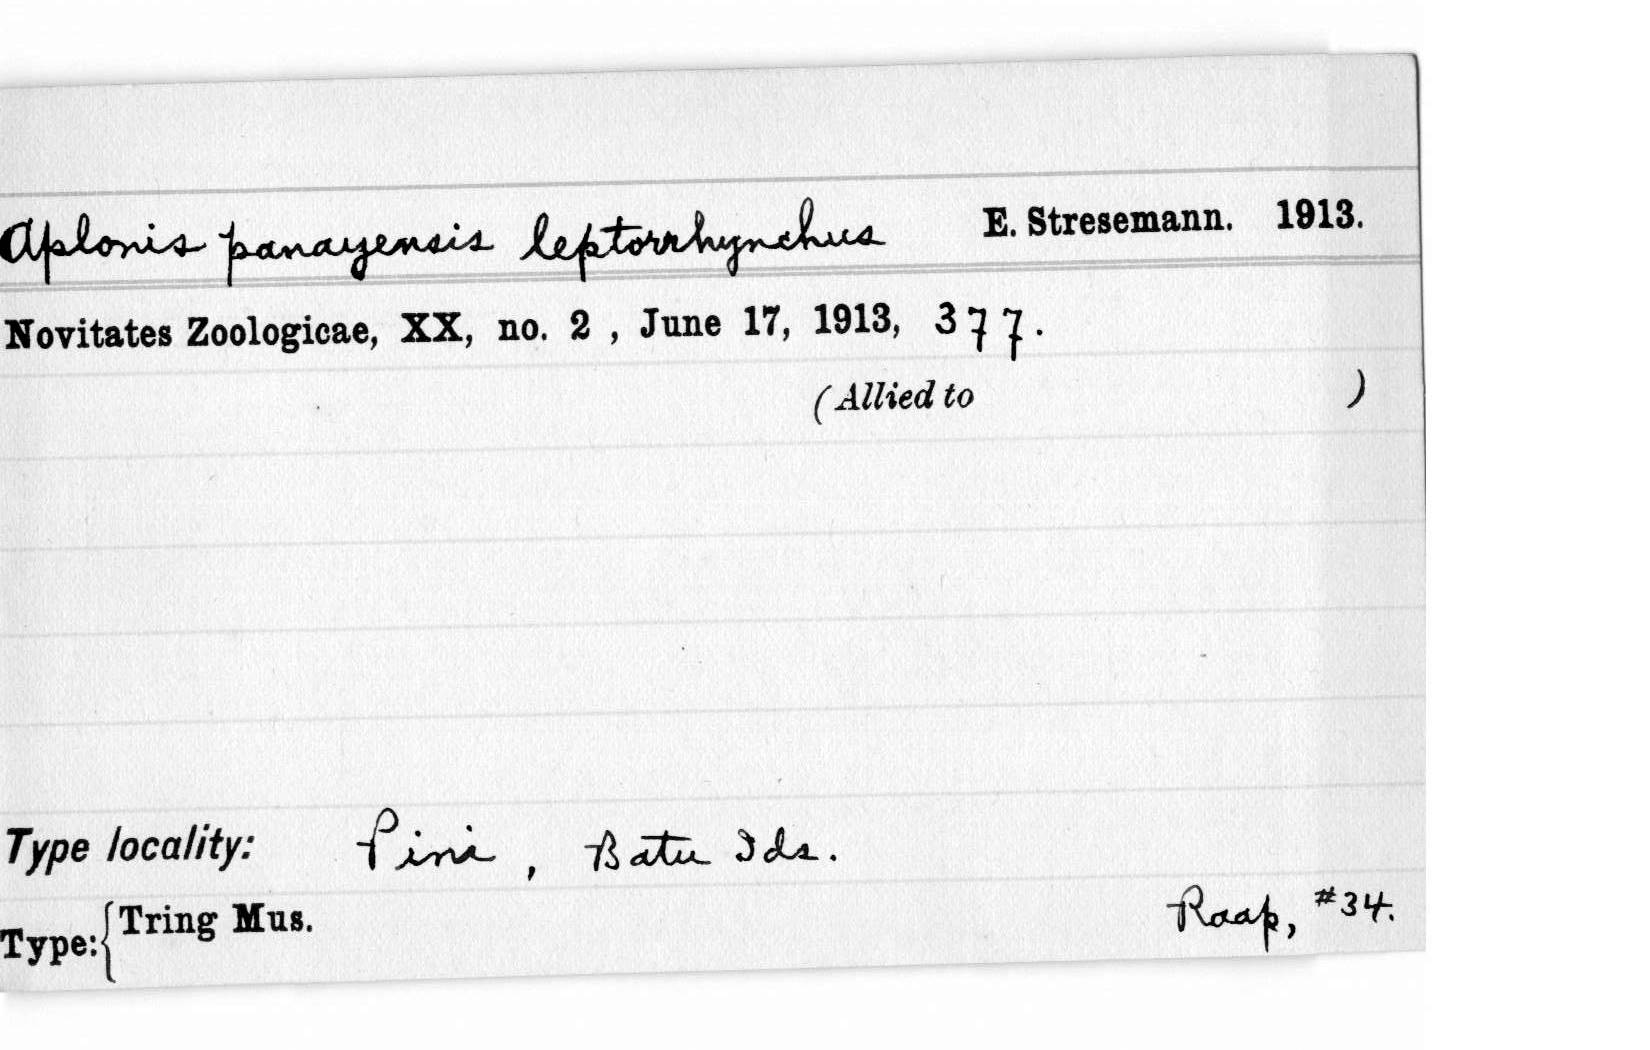 Aplonis panayensis leptorrhynchus E. Stresemann. 1913.
Novitates Zoologicae, XX, no. 2 , June 17, 1913, 377.
(Allied to )
Type locality: Pini , Batu Ids.
Type:{Tring Mus. Raap, #34.